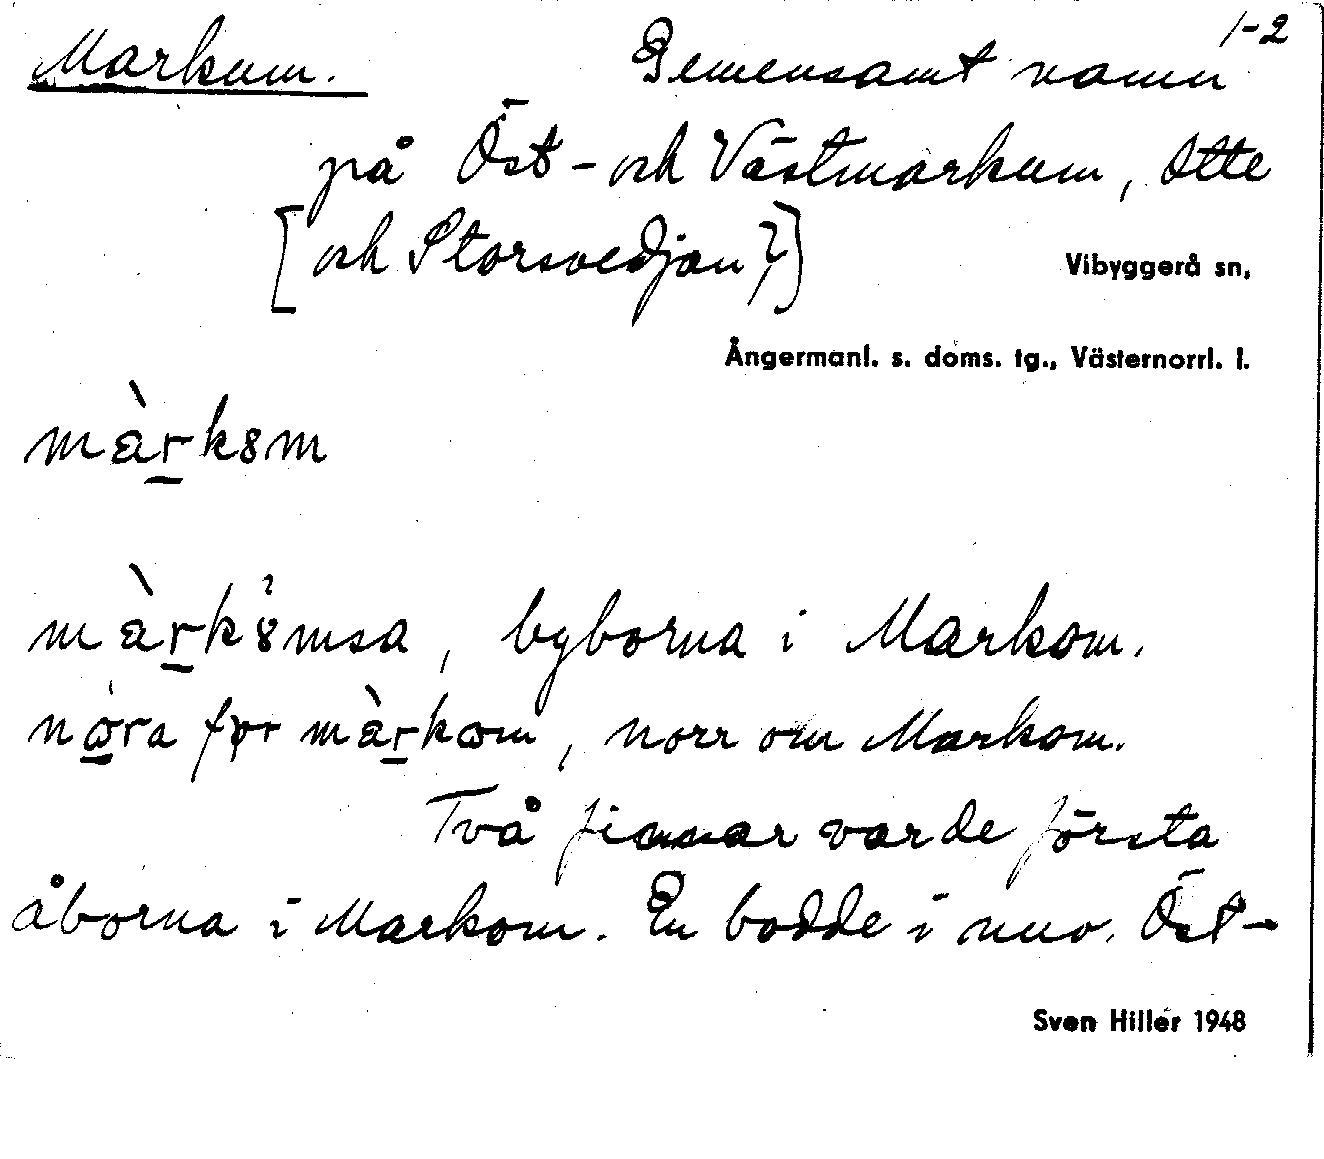 1-2
Markum. Gemensamt namn
på Öst- och Västmarkum, Otte
[och Storsvedjan?]
Vibyggerå sn,
Ångermanl. s. doms. tg., Västernorrl. l.
màrkɜm
màrkɜmsa, byborna i Markom.
nɷra før màrkɷm, norr om Markom.
Två finnar varde första
åborna i Markom. En bodde i nuv. Öst-
Sven Hiller 1948